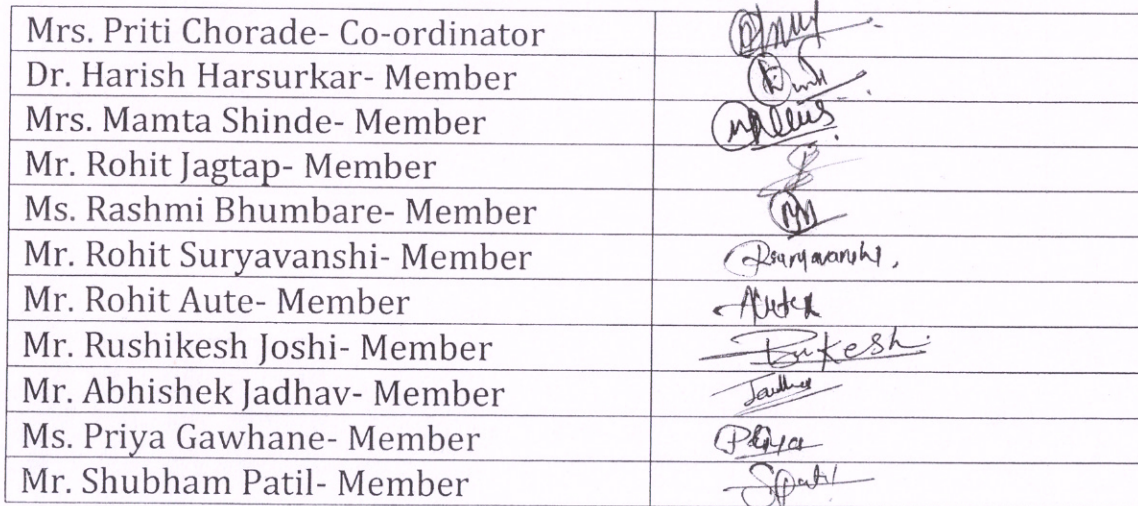 Mrs. Priti Chorade- Co-ordinator
Dr. Harish Harsurkar- Member
Mrs. Mamta Shinde- Member
Mr. Rohit Jagtap- Member
Ms. Rashmi Bhumbare- Member
Mr. Rohit Suryavanshi- Member Rsuryavanshi,
Mr. Rohit Aute- Member
Mr. Rushikesh Joshi- Member
Mr. Abhishek Jadhav- Member
Ms. Priya Gawhane- Member Priya
Mr. Shubham Patil- Member SPatil